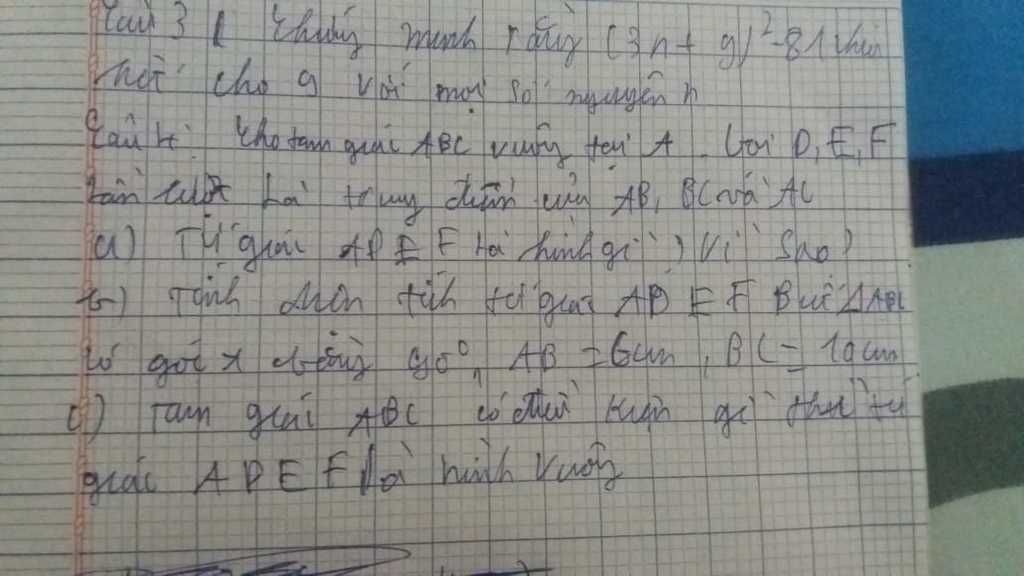 Câu 3 ( Chứng minh rằng (3n + 9)² - 81 chia
hết cho 9 với mọi số nguyên n
Câu 4: Cho tam giác ABC vuông tại A. Gọi D, E, F
lần lượt là trung điểm của AB, BC và AC
a) Tứ giác ADEF là hình gì ? Vì sao?
b) Tính diện tích tứ giác ADEF Biết ΔABC
có góc A bằng 90°, AB = 6cm, BC = 10cm
c) Tam giác ABC có điều kiện gì thì tứ
giác ADEF là hình vuông